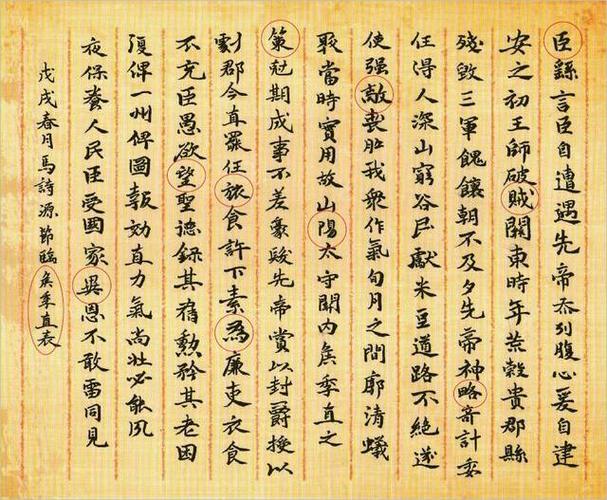 臣繇言臣自遭遇先帝忝列腹心爰自建
安之初王師破賊關東時年荒穀貴郡縣
殘毀三軍餽饟朝不及夕先帝神略奇計委
任得人深山窮谷民獻米豆道路不絕遂
使强敵喪胆我衆作氣旬月之間廓清蟻
聚當時實用故山陽太守關內侯季直之
策尅期成事不差豪髮先帝賞以封爵授以
劇郡今直罷任旅食許下素為廉吏衣食
不充臣愚欲望聖德錄其舊勳矜其老困
復俾一州俾圖報効直力氣尚壯必能夙
夜保養人民臣受國家異恩不敢雷同見
戊戌春月馬詩源節臨矦季直表